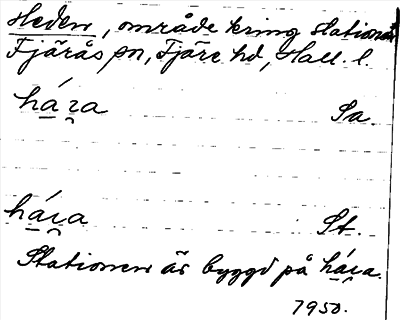 Heden, område kring Stationen
Fjärås sn, Fjäre hd, Hall. l.
há̱ꝛa Sa.
há̱ꝛa St.
Stationen är byggd på há̱ꝛa.
1950.